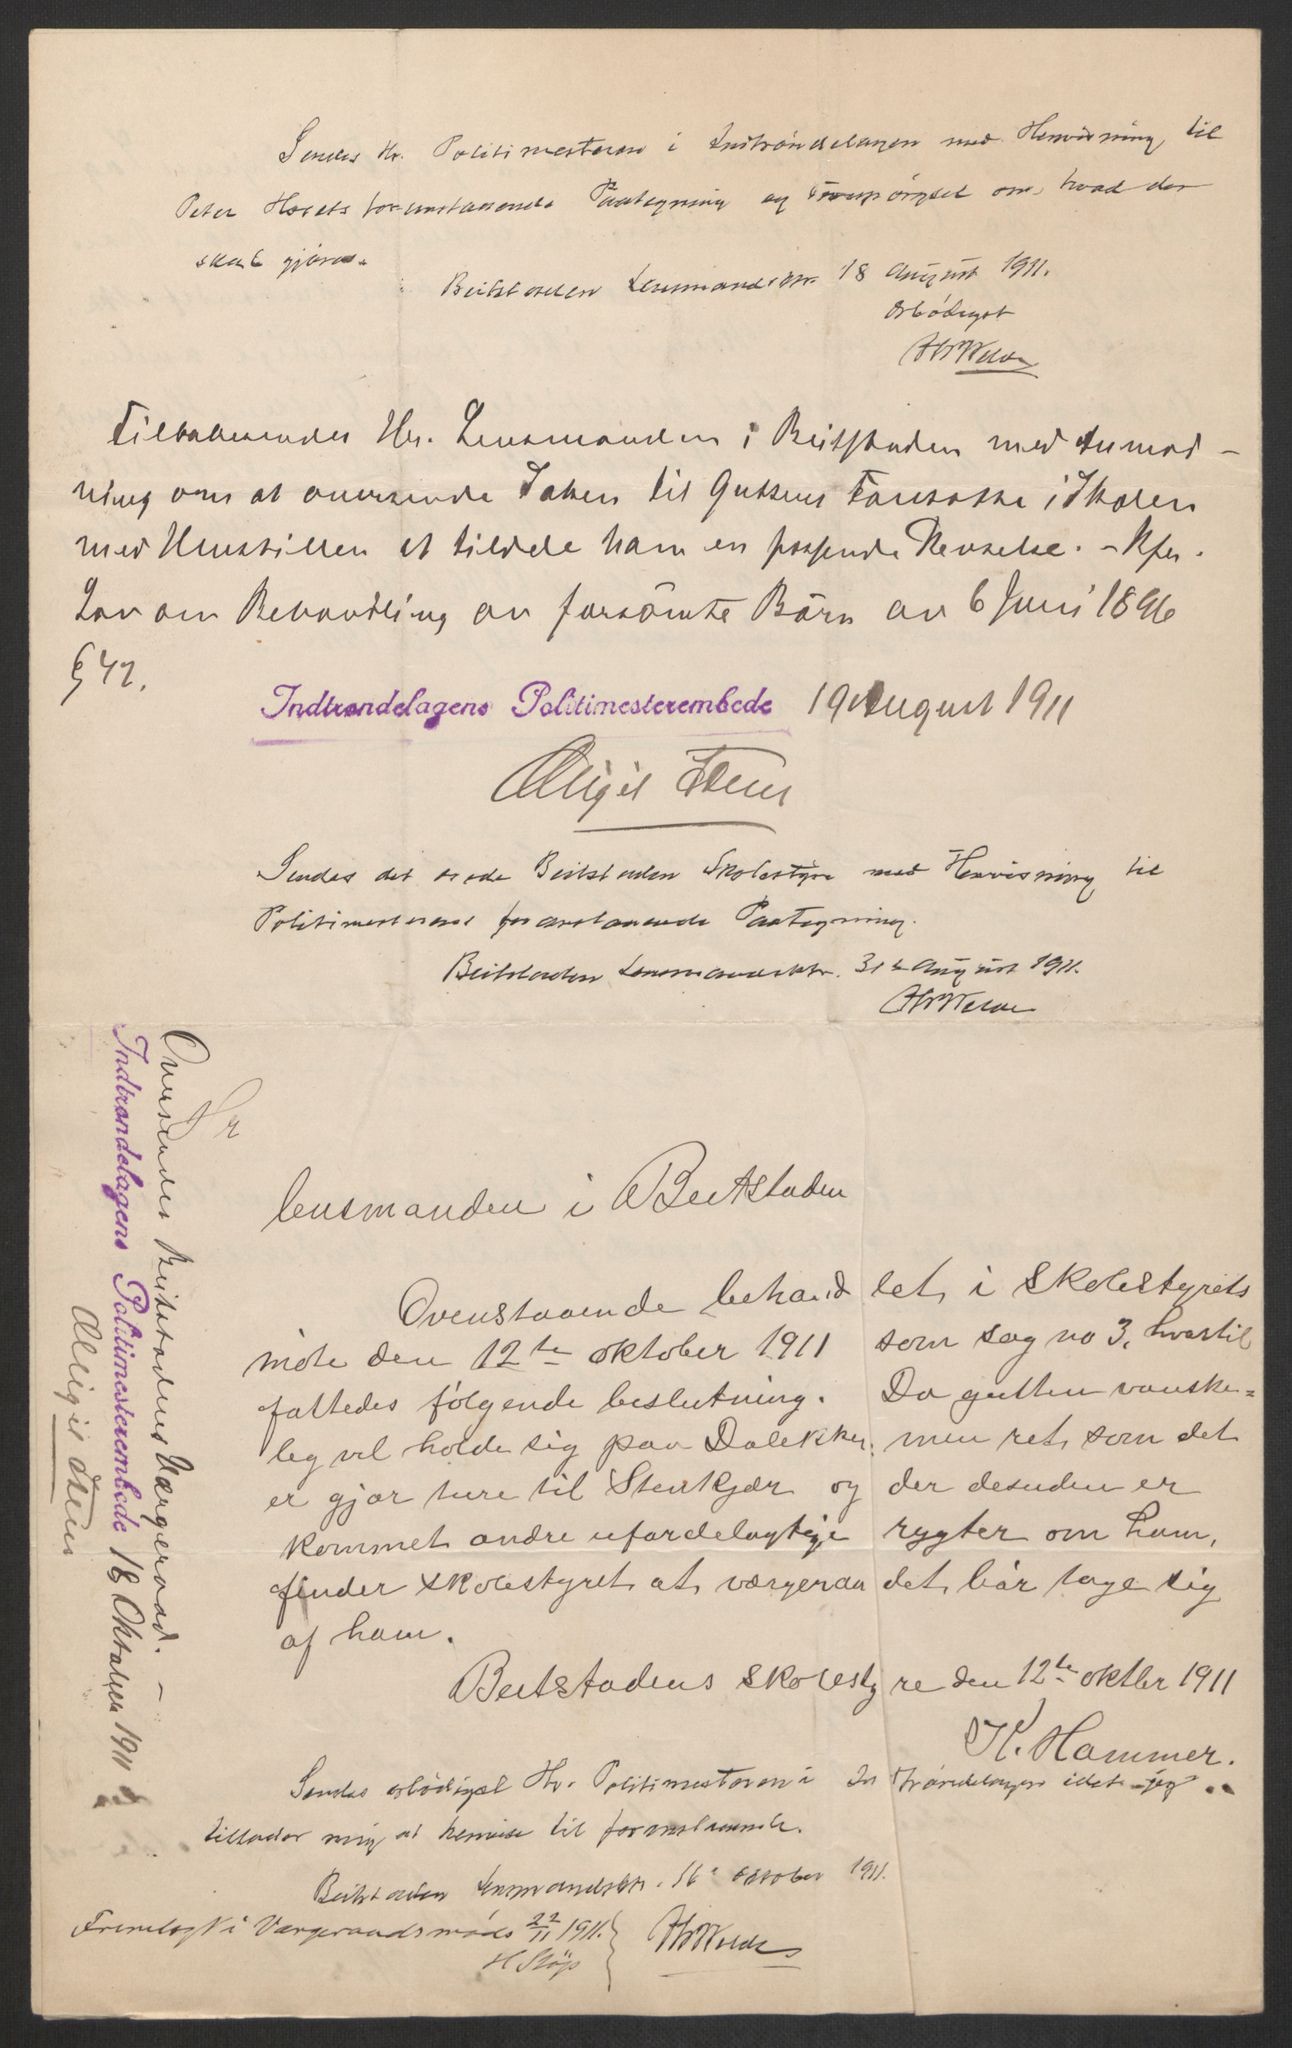 Sendes Hr. Politimesteren i Indtrøndelagen med Henvisning til
Peter foranstaaende Paategning og Forespørgsel om, hvad der
skal gjøres.
Beitstaden Lensmandsktr. 18 August 1911.
Ærbødigst
Tilbagesendes Hr. Lensmanden i Beitstaden med Anmod-
ning om at oversende Saken til Guttens Foresatte i Skolen
med Henstillen at tildele ham en passende Revselse. - Kfr.
Lov om Behandling av forsömte Börn av 6 Juni 1896
§ 42.
Indtrøndelagens Politimesterembede 19 August 1911
Sendes det ærede Beitstaden Skolestyre med Henvisning til
Politimesterens foranstaaende Paategning.
Beitstaden Lensmandsktr. 31te August 1911.
Hr
lensmanden i Beitstaden
Ovenstaaende behandlet i skolestyrets
möte den 12te oktober 1911 som sag no 3, hvortil
fattedes følgende beslutning. Da gutten vanske=
leg vil holde sig paa men ret som det
er gjør ture til Stenkjær og der desuden er
kommet andre ufordelagtige rygter om ham,
finder skolestyret at værgeraadet bör tage sig
af ham.
Beitstadens skolestyre den 12te oktbr 1911
K. Hammer.
Sendes ærbödigst Hr. Politimesteren i Indtrøndelagen idet jeg
tillader mig at henvise til foranstaaende.
Beitstaden Lensmandsktr. 16 oktober 1911.
Fremlagt i Værgeraadsmøde 22/11 1911.
Oversendes Beitstadens Værgeraad. -
Indtrøndelagens Politimesterembede 18 Oktober 1911